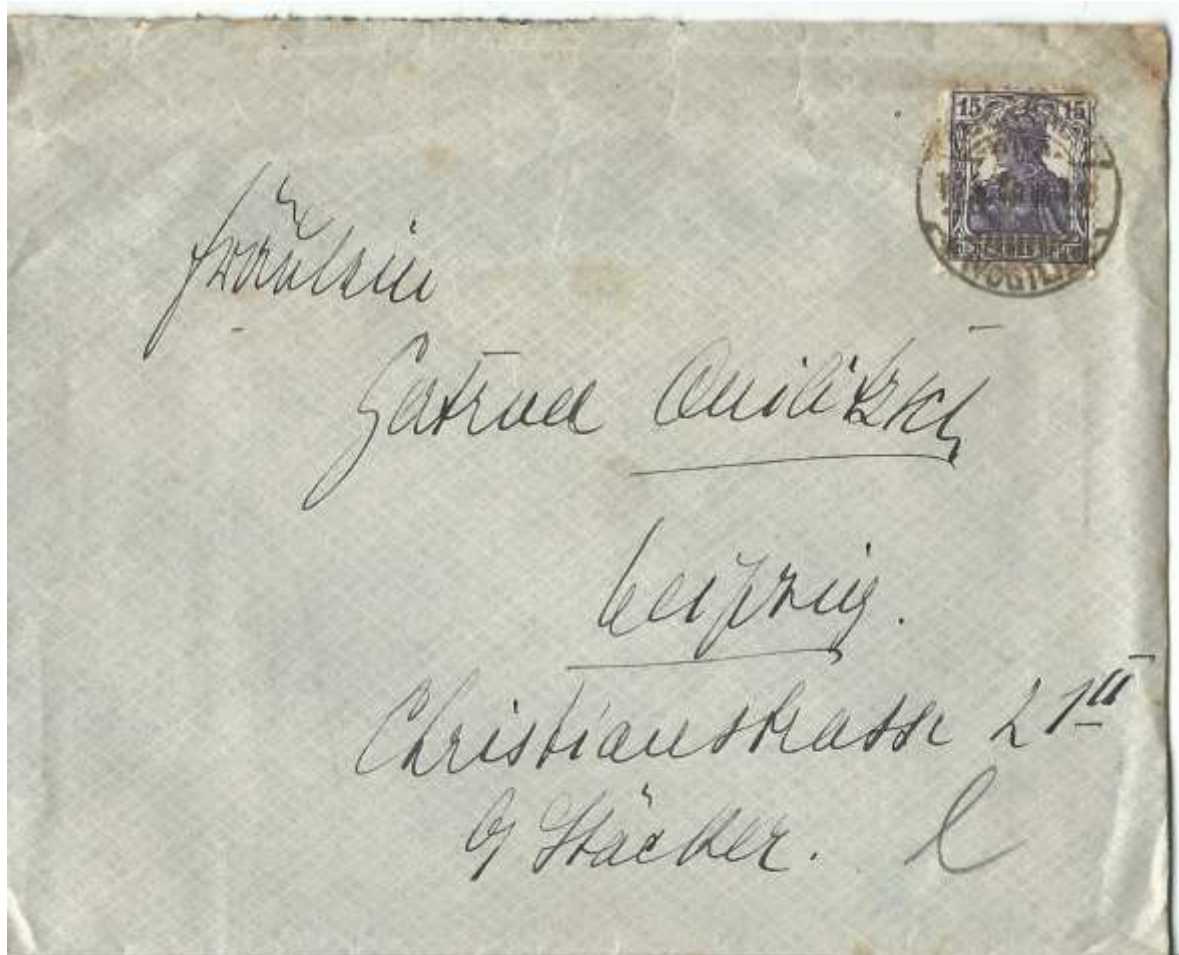 15 15
Fräulein
Gertrud Quilitzsch
Leipzig.
Christianstrasse 21 II
b/ Stäcker. l